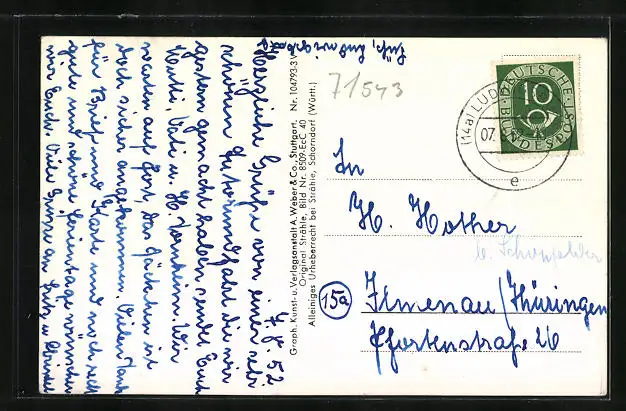 7. 8. 52
Herzliche Grüße von einer sehr
schönen Autorundfahrt die wir
gestern gemacht haben sendet Euch
Mutti, Vati u. H. Wir
warten auf Post, das Päckchen ist
doch sicher angekommen. Vielen Dank
für Brief und Karte und noch recht
gute und schöne Ferientage wünschen
wir Euch. Viele Grüße an
Graph. Kunst- u. Verlagsanstalt A. Weber & Co., Stuttgart. Nr. 104793-3
Original Strähle, Bild Nr. 8509-EcC 40
Alleiniges Urheberrecht bei Strähle, Schorndorf (Württ.)
71543
DEUTSCHE BUNDESPOST
10
(14a) LUD
07.
e
An
H. Hother
b. Schönfelder
(15a) Ilmenau/Thüringen
Pfortenstraße 26